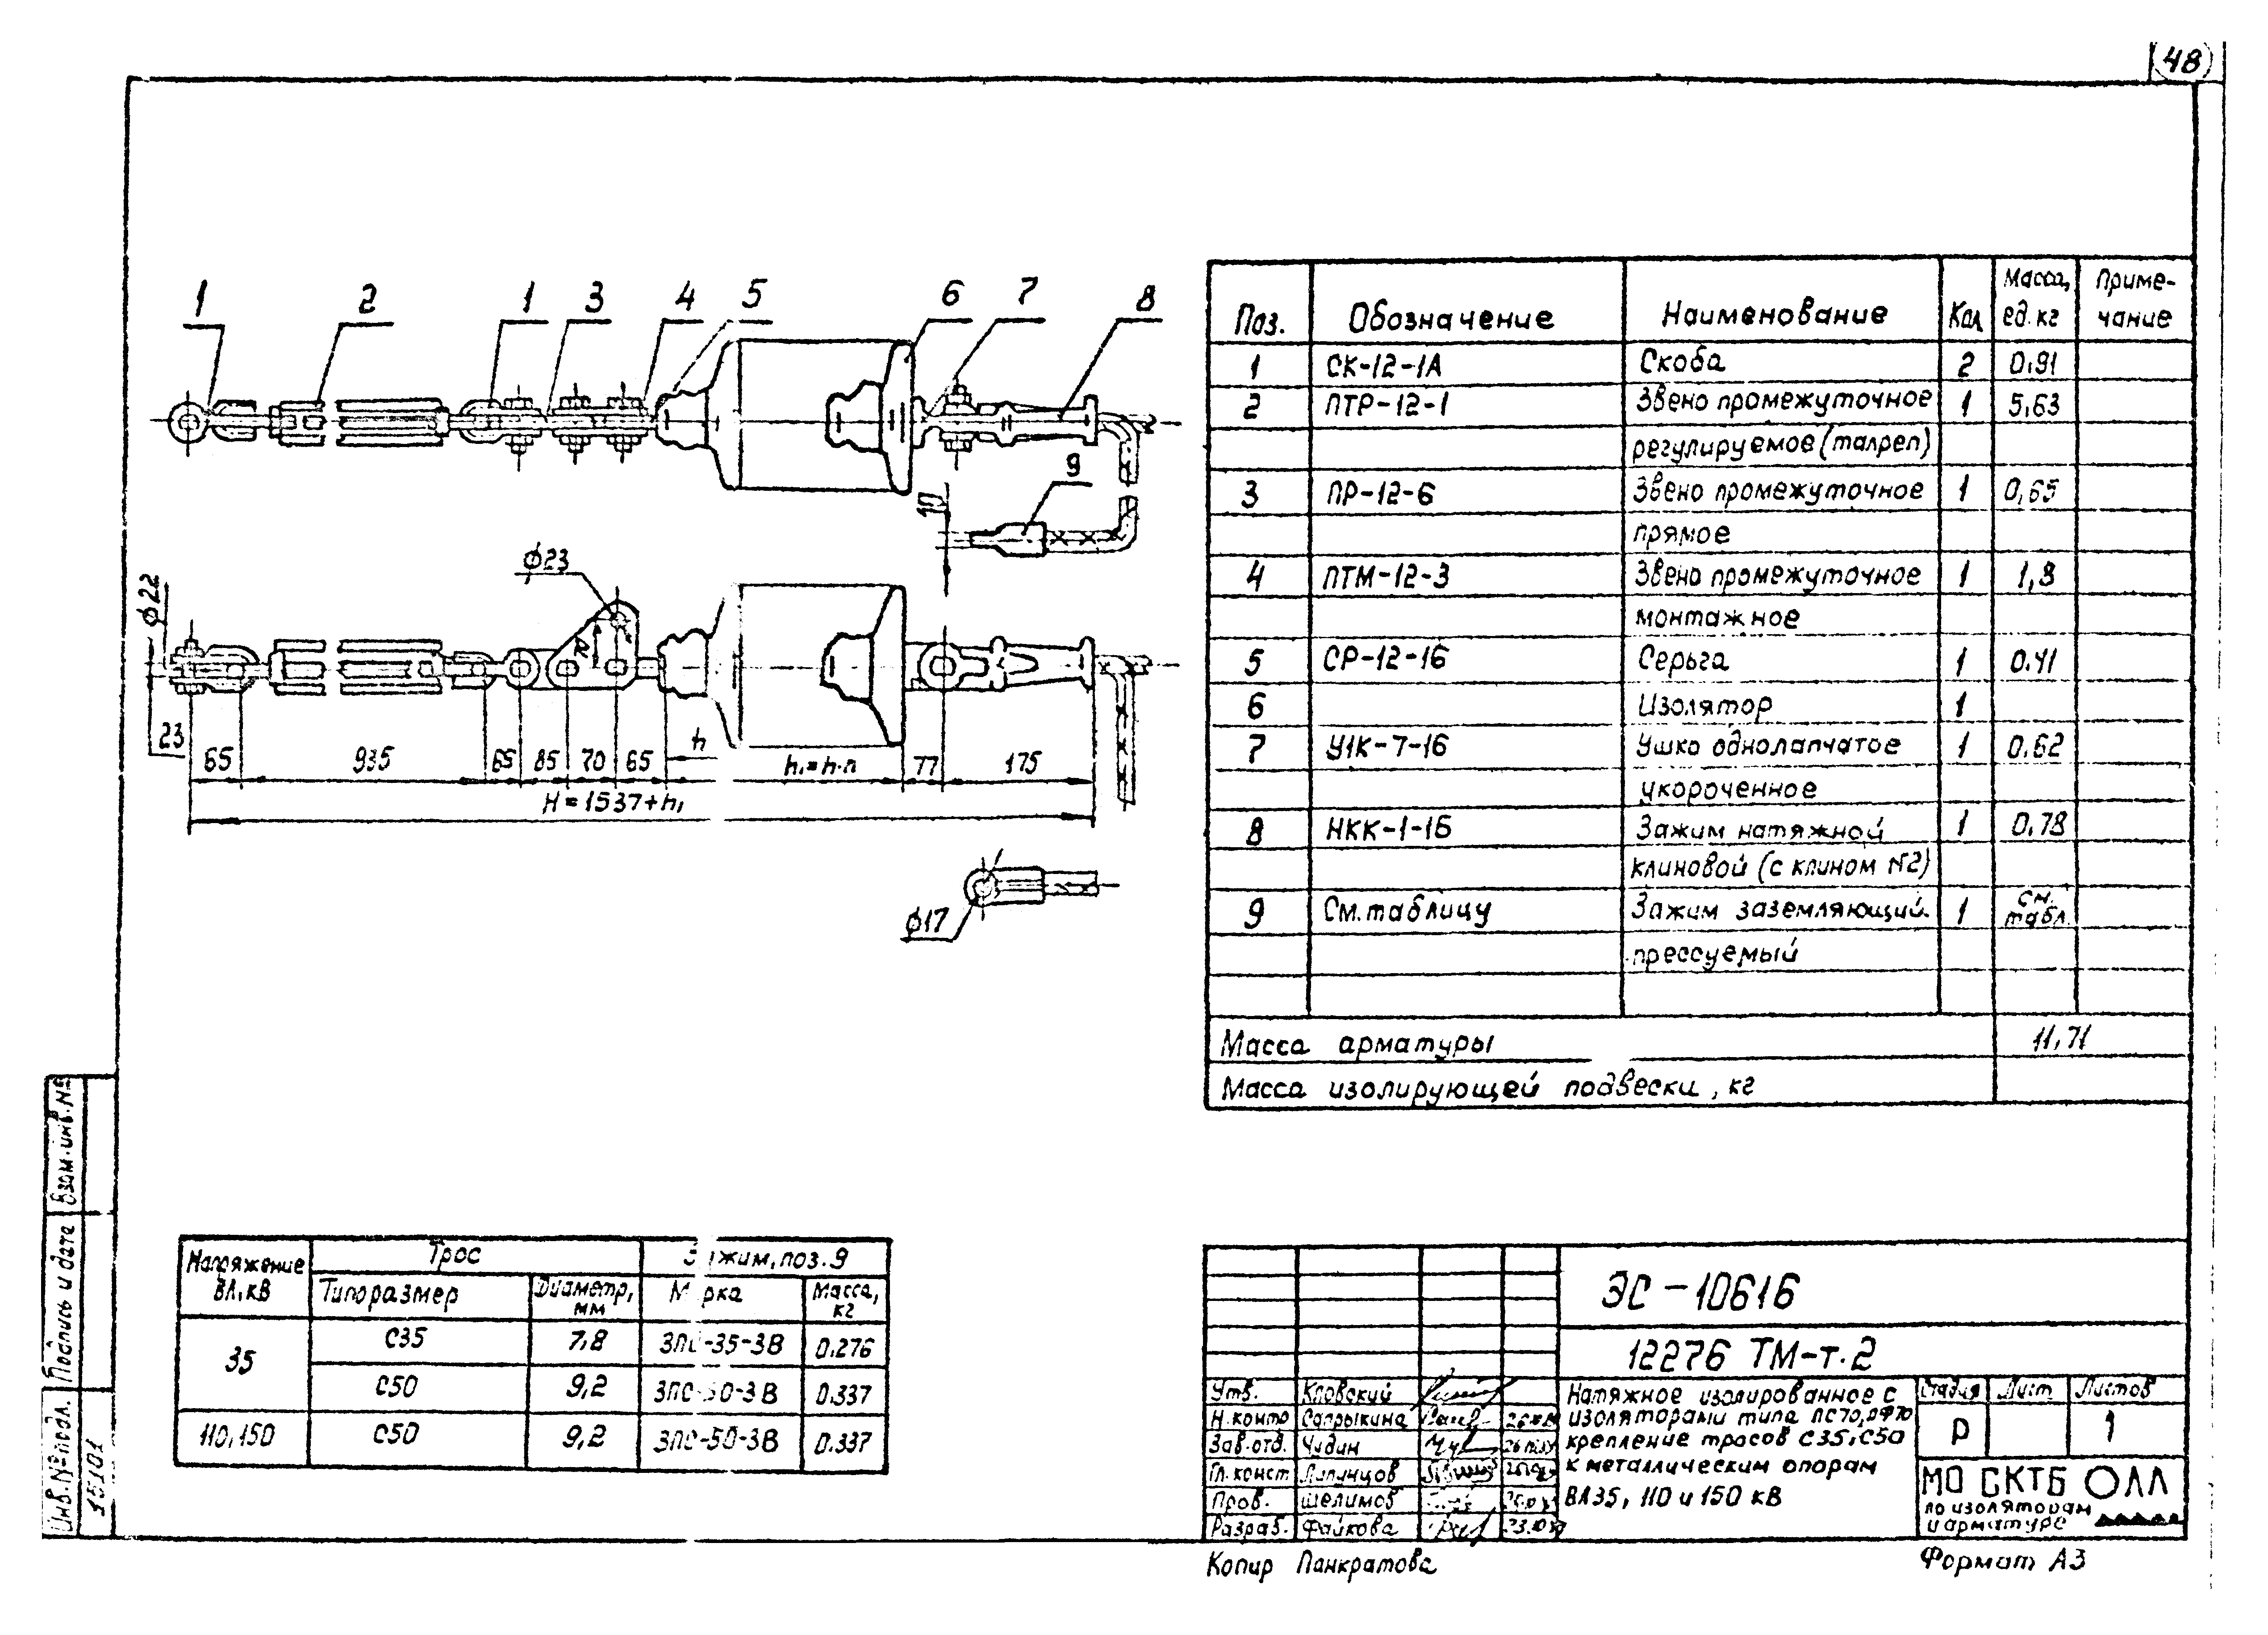 48
1 2 1 3 4 5 6 7 8
9
10
⌀23
⌀22
70
23
65 935 65 85 70 65 h h₁=h·n 77 175
H=1537+h₁
⌀17
Поз. Обозначение Наименование Кол Масса, ед. кг Приме-чание
1 СК-12-1А Скоба 2 0,91
2 ПТР-12-1 Звено промежуточное 1 5,63
регулируемое (талреп)
3 ПР-12-6 Звено промежуточное 1 0,65
прямое
4 ПТМ-12-3 Звено промежуточное 1 1,8
монтажное
5 СР-12-16 Серьга 1 0.41
6 Изолятор 1
7 У1К-7-16 Ушко однолапчатое 1 0.62
укороченное
8 НКК-1-1Б Зажим натяжной 1 0.78
клиновой (с клином №2)
9 См. таблицу Зажим заземляющий 1 См. табл.
прессуемый
Масса арматуры 11,71
Масса изолирующей подвески, кг
Напряжение ВЛ, кВ Трос Зажим, поз.9
Типоразмер Диаметр, мм Марка Масса, кг
35 С35 7,8 ЗПС-35-3В 0.276
С50 9,2 ЗПС-50-3В 0.337
110,150 С50 9,2 ЗПС-50-3В 0.337
Взам. инв. №
Подпись и дата
Инв. № подл.
15101
ЭС-10616
12276 ТМ-т.2
Утв. Кловский
Н.контр Сапрыкина
Зав.отд. Чудин
Гл.конст Липунцов
Пров. Шелимов
Разраб. Файкова
Натяжное изолированное с
изоляторами типа ПС70, ПФ70
крепление тросов С35, С50
к металлическим опорам
ВЛ35, 110 и 150 кВ
Стадия Лист Листов
Р 1
МО СКТБ ОЛЛ
по изоляторам
и арматуре
Копир Панкратова
Формат А3